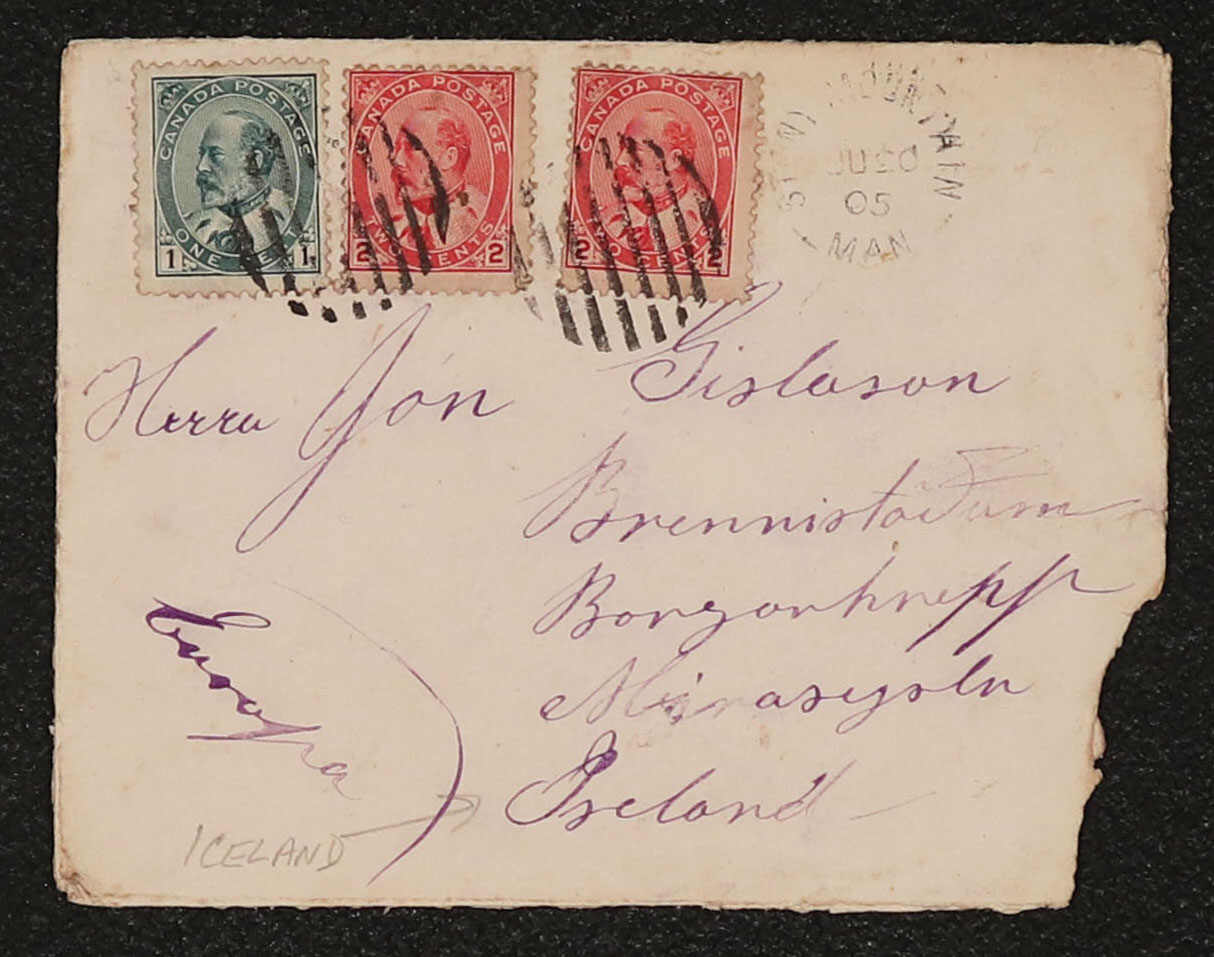 CANADA POSTAGE
ONE CENT
1 1
CANADA POSTAGE
TWO CENTS
2 2
CANADA POSTAGE
TWO CENTS
2 2
MOUNTAIN
05
MAN
Herra Jón Gislason
Brennistöðum
Borgarhrepp
Mirasyslu
Island
Evropa
ICELAND